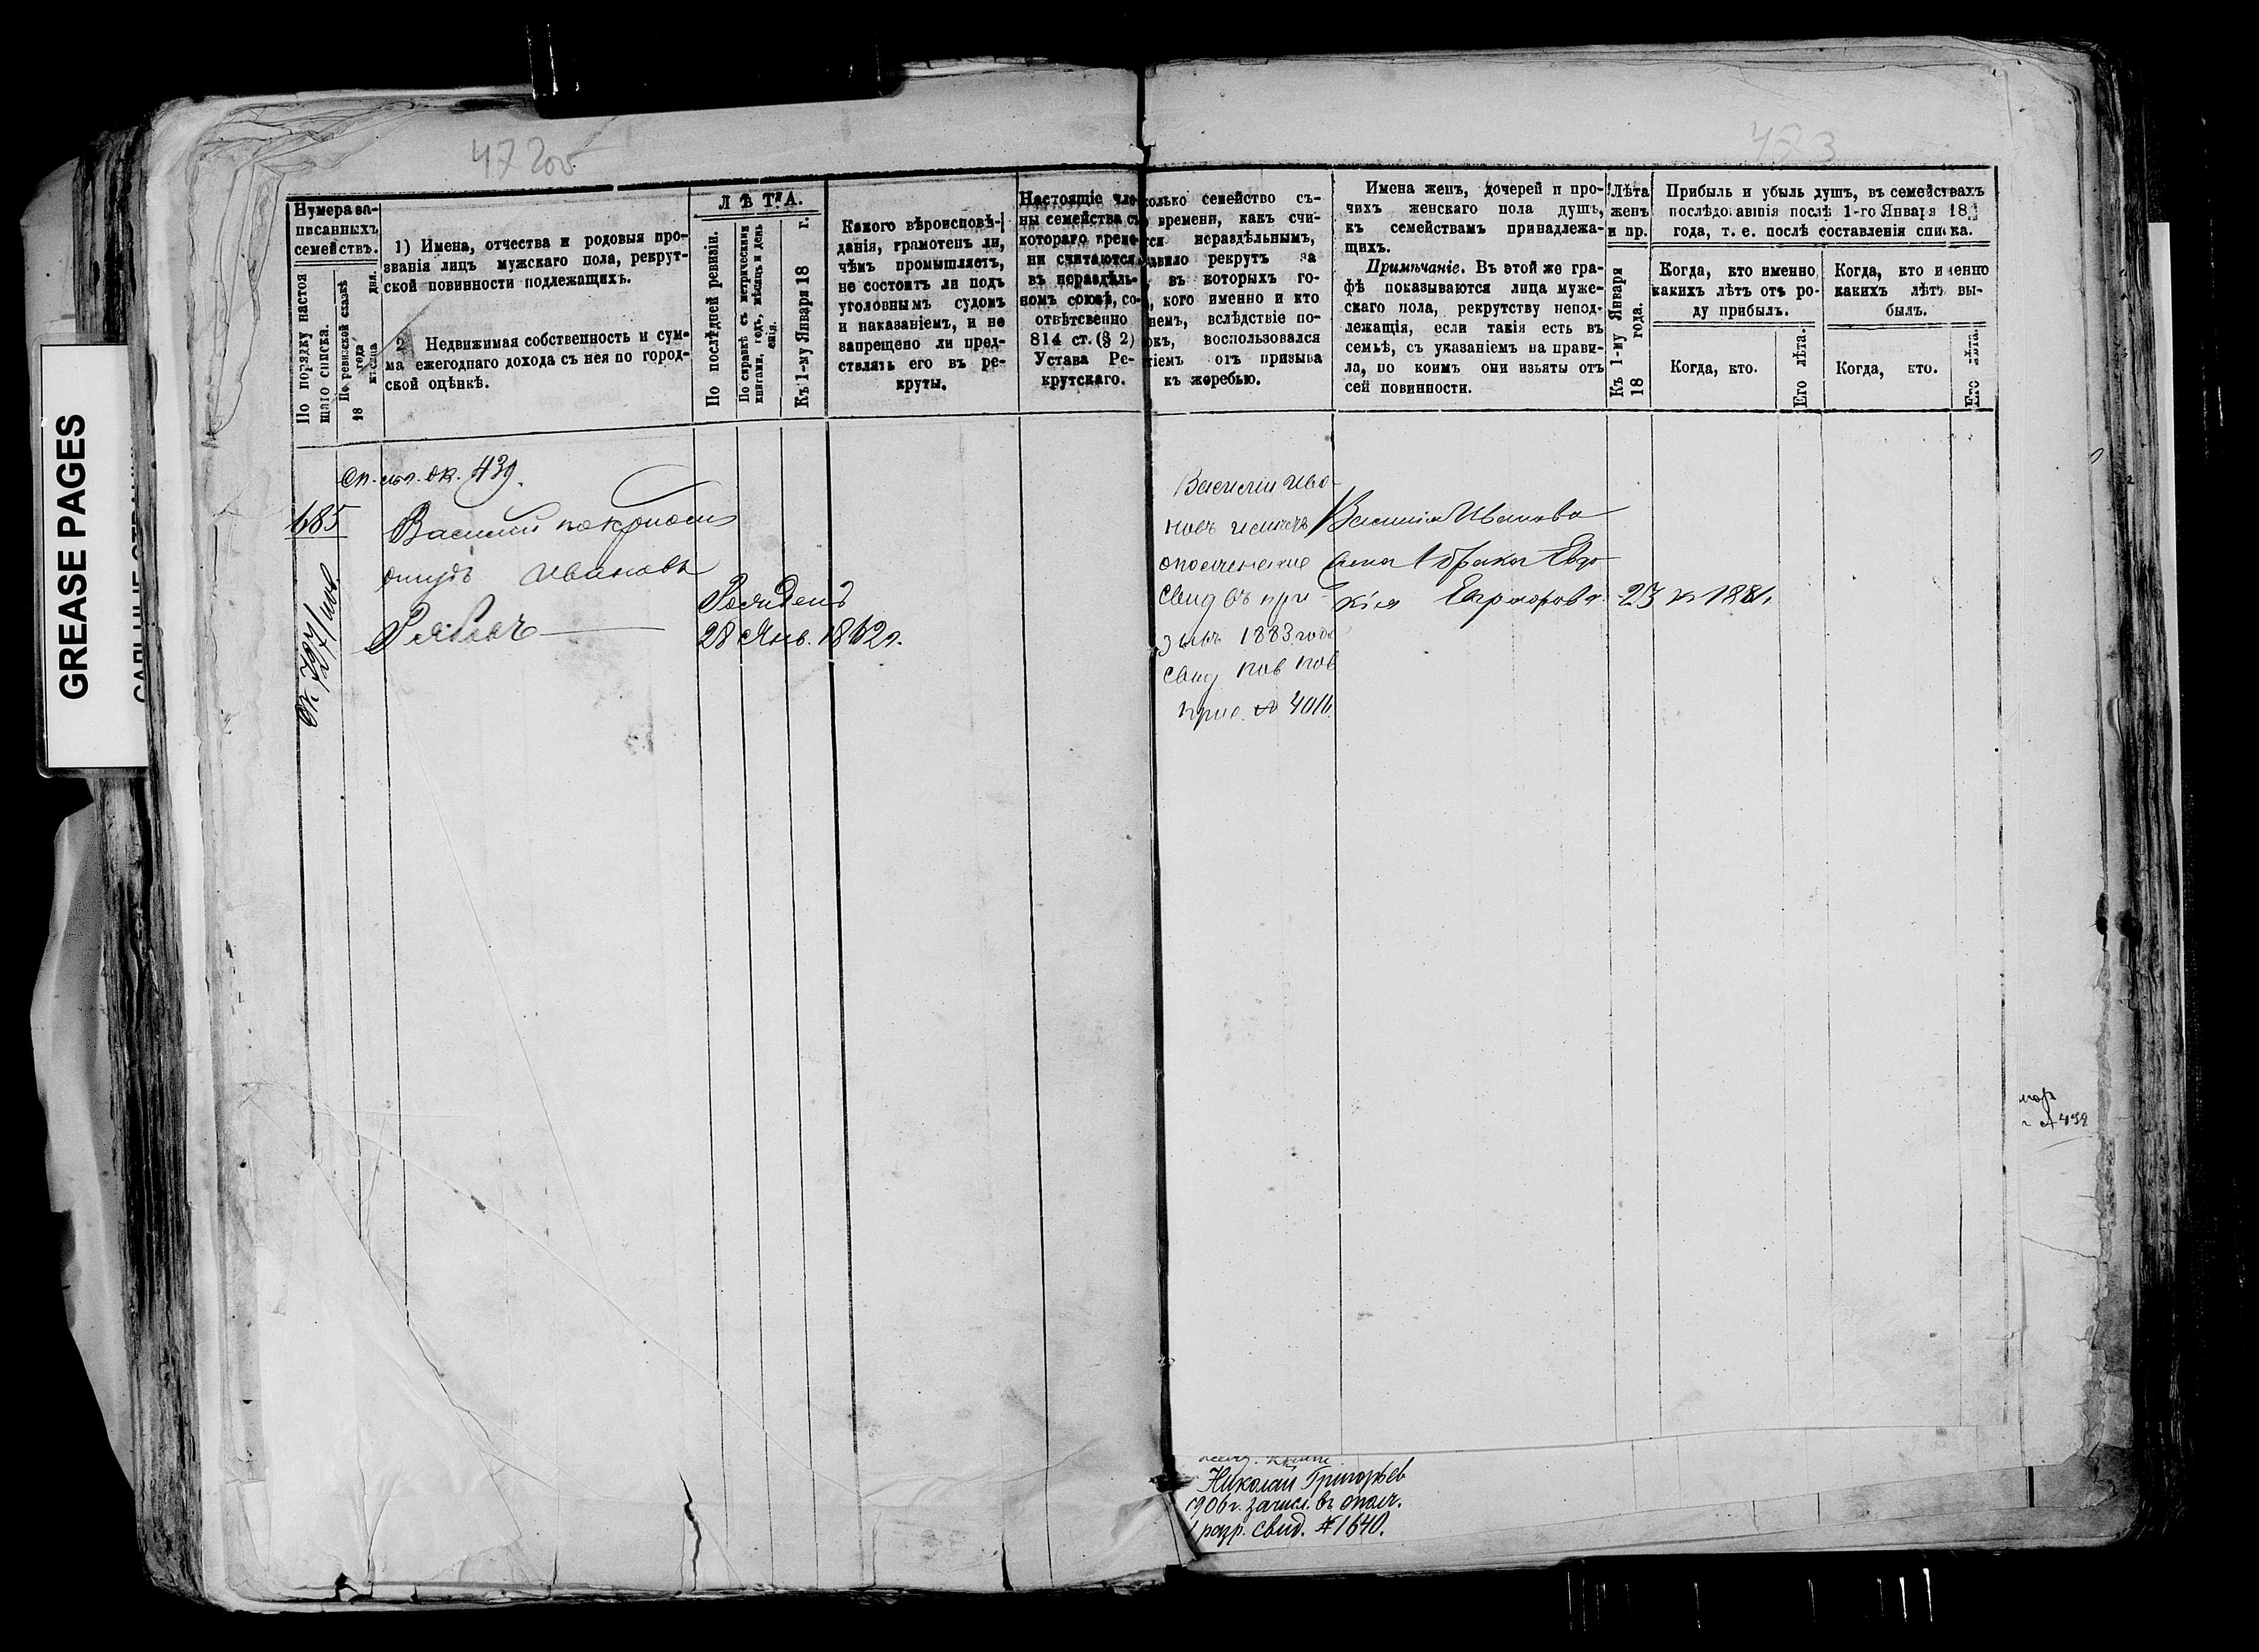 47 200
473
GREASE PAGES
Нумера за-
писанныхъ
семействъ.
По порядку настоя
щаго списка.
По ревизской сказкѣ
18 года
мѣсяца дня.
1) Имена, отчества и родовыя про-
званія лицъ мужскаго пола, рекрут-
ской повинности подлежащихъ.
2 Недвижимая собственность и сум-
ма ежегоднаго дохода съ нея по город-
ской оцѣнкѣ.
ЛѢТА.
По послѣдней ревизіи.
По справкѣ съ метрическими
книгами, годъ, мѣсяцъ и день
Къ 1-му Января 18 г.
Какого вѣроисповѣ-
данія, грамотенъ ли,
чѣмъ промышляетъ,
не состоитъ ли подъ
уголовнымъ судомъ
и наказаніемъ, и не
запрещено ли пред-
ставлять его въ ре-
круты.
Настоящіе чле-
ны семейства съ
котораго време-
ни считаются
въ нераздѣль-
номъ союзѣ, со-
отвѣтсвенно
814 ст. (§ 2)
Устава Ре-
крутскаго.
колько семейство съ-
времени, какъ счи-
тся нераздѣльнымъ,
авило рекрутъ за
въ которыхъ го-
, кого именно и кто
немъ, вслѣдствіе по-
окъ, воспользовался
тіемъ отъ призыва
къ жеребью.
Имена женъ, дочерей и про-
чихъ женскаго пола душъ,
къ семействамъ принадлежа-
щихъ.
Примѣчаніе. Въ этой же гра-
фѣ показываются лица муже-
скаго пола, рекрутству непод-
лежащія, если такія есть въ
семьѣ, съ указаніемъ на прави-
ла, по коимъ они изъяты отъ
сей повинности.
Лѣта
женъ
и пр.
Къ 1-му Января
18 года.
Прибыль и убыль душъ, въ семействахъ
послѣдовавшія послѣ 1-го Января 18
года, т. е. послѣ составленія списка.
Когда, кто именно
какихъ лѣтъ отъ ро-
ду прибылъ.
Когда, кто именно
какихъ лѣтъ вы-
былъ.
Когда, кто.
Его лѣта.
Когда, кто.
Его лѣта.
439.
685
Василий
Иванова
Рожден
28 Янв. 1862 г.
Василій Ива
новъ
ополченіе
1883 года
свид
№ 4016
Василія Иванова
жена 1 брака Евдо
кія 23 к 1881.
№ 439
Николай Григорьев
1906 г. зачисл. въ ополч.
1 разр. свид. № 1640.